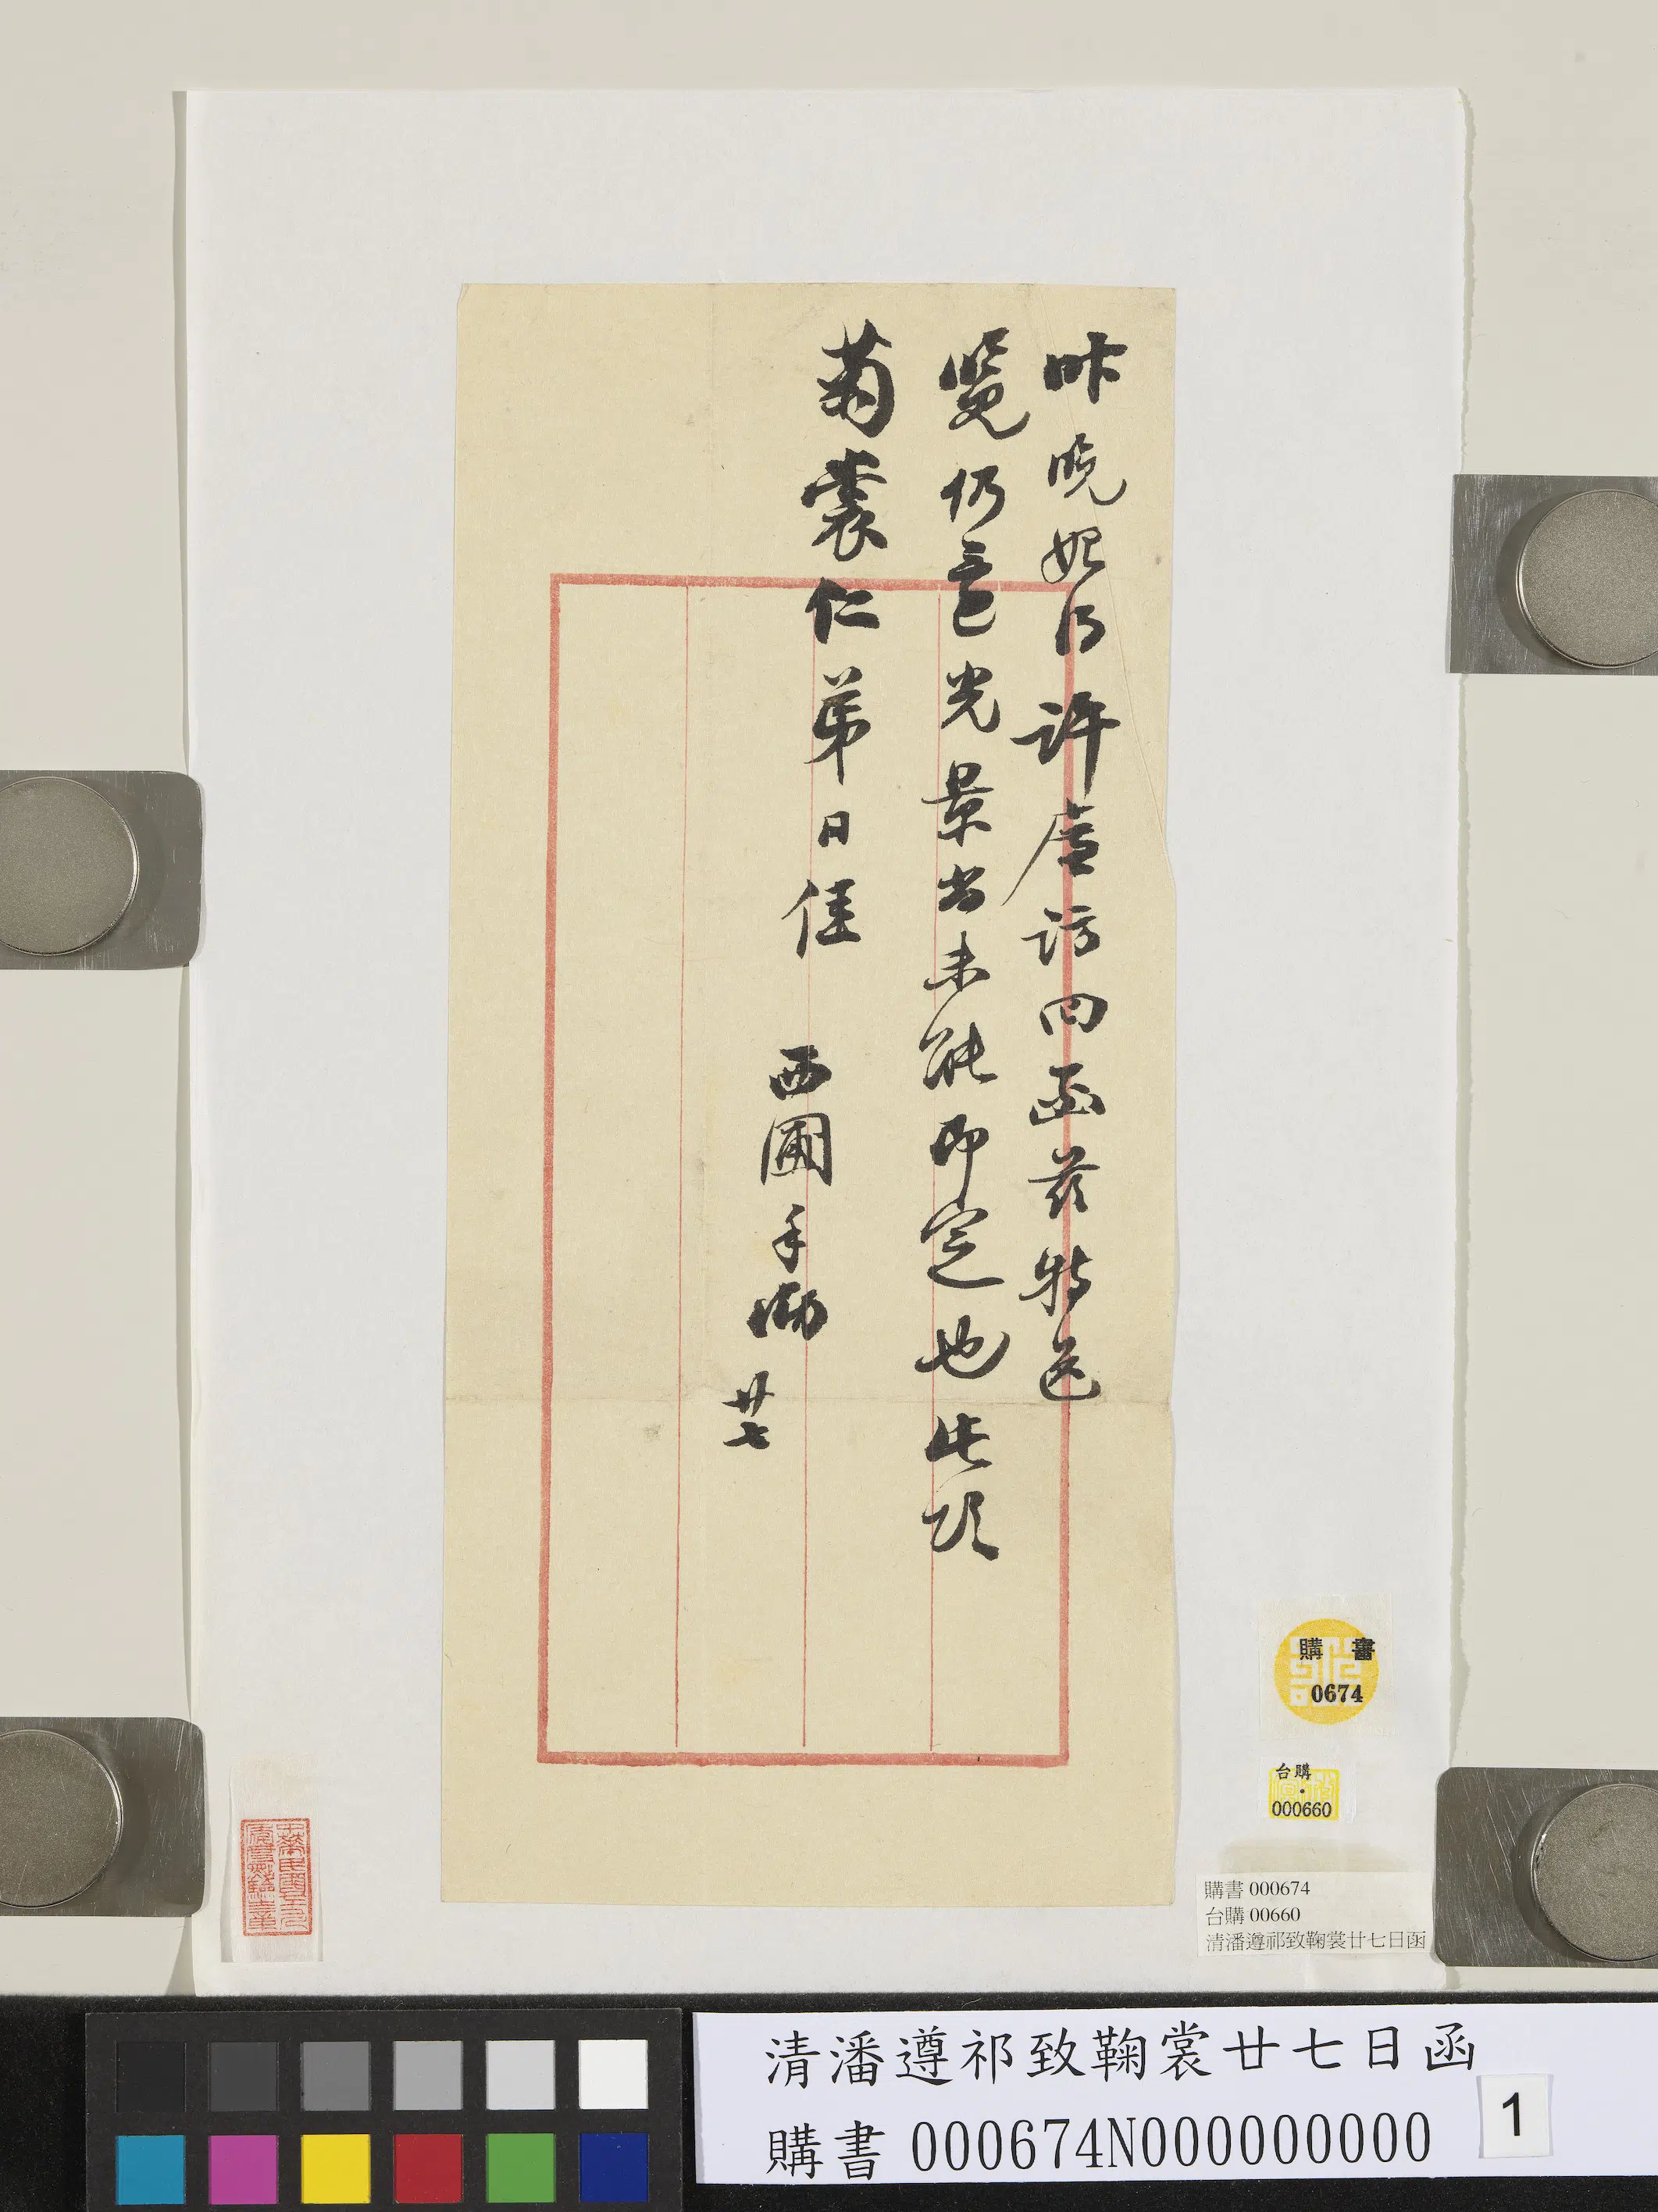 昨晚始得許虛訪回函茲特送
覽仍意光景尚未能即定也此頌
菊裳仁弟日佳
西圃手泐
廿七
購書
0674
台購
000660
購書 000674
台購 00660
清潘遵祁致鞠裳廿七日函
清潘遵祁致鞠裳廿七日函
購書 000674N000000000
1